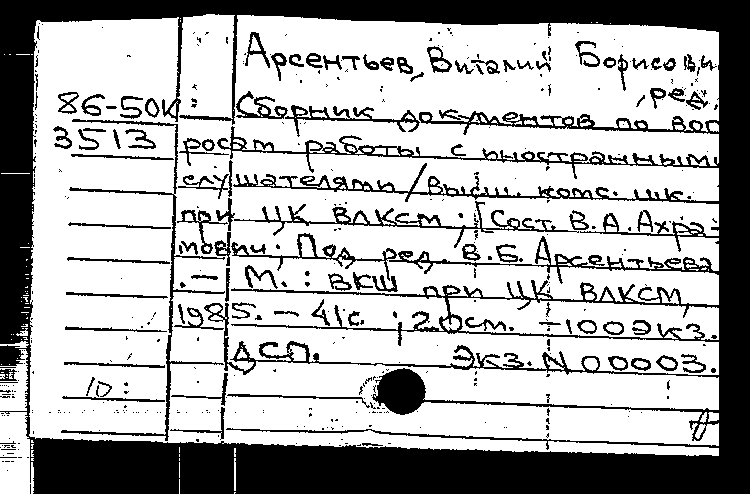 Арсентьев, Виталий Борисови
, ред.
86-50К Сборник документов по воп
3513 росам работы с иностранными
слушателями / Высш. комс. шк.
при ЦК ВЛКСМ; [Сост. В.А. Ахра-
мович; Под ред. В.Б. Арсентьева
. — М.: ВКШ при ЦК ВЛКСМ,
1985. — 41с. ; 20см. — 100экз.
ДСП. Экз. N 00003.
10: